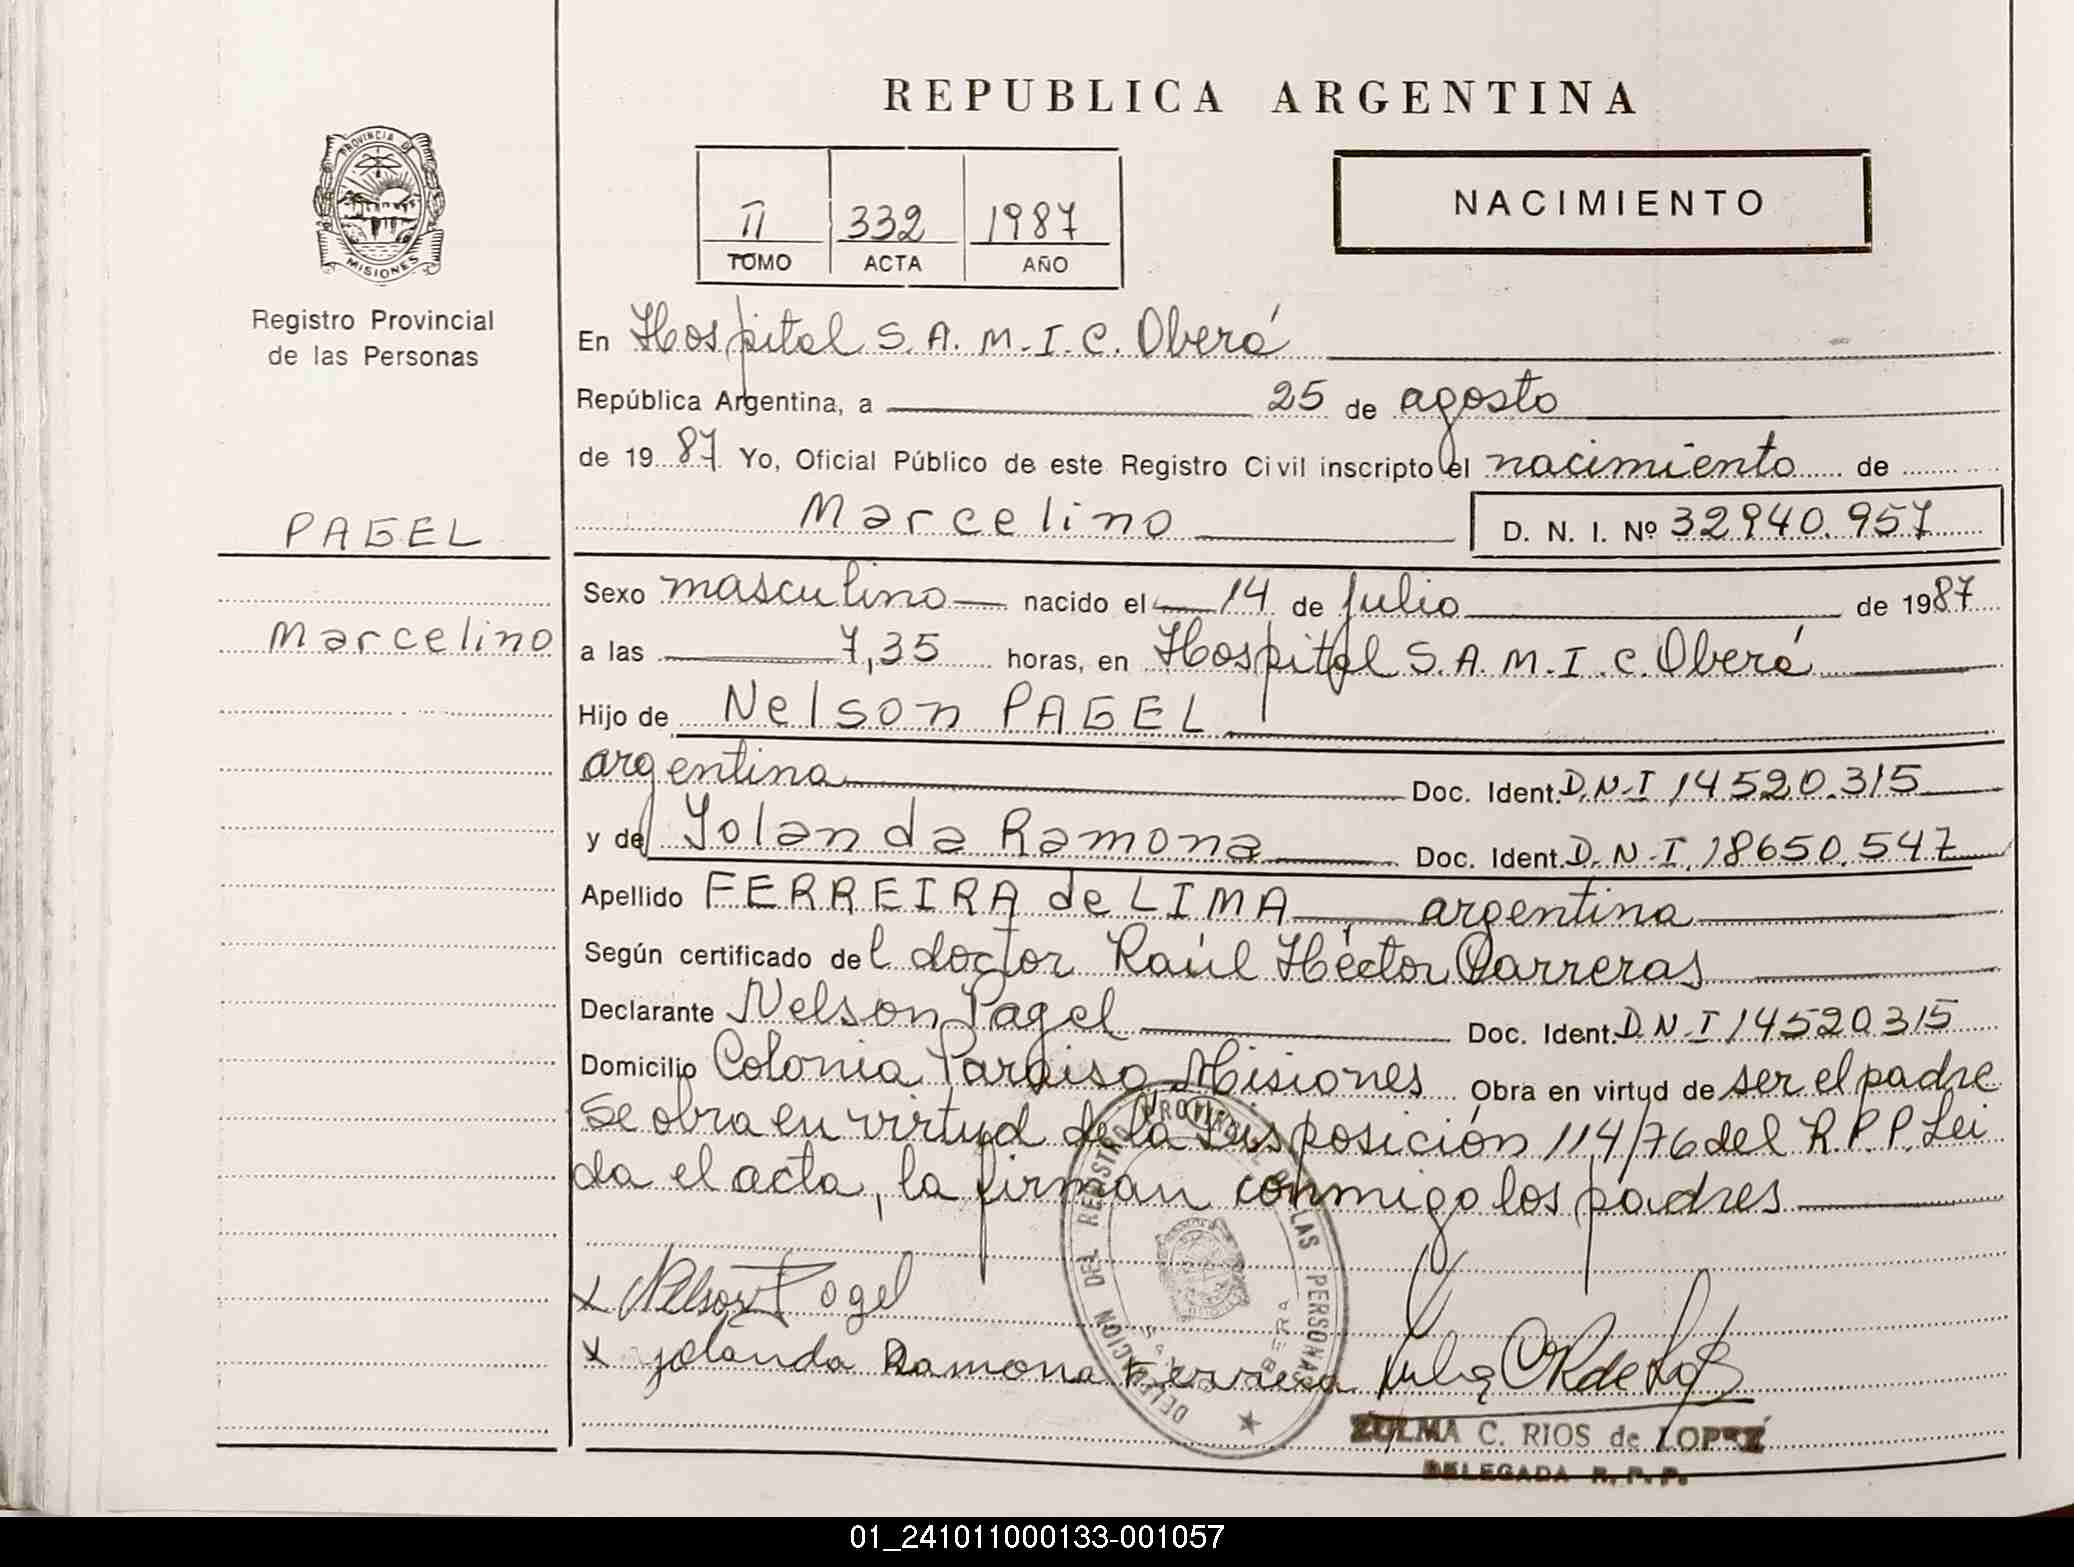 REPUBLICA ARGENTINA
PROVINCIA DE
MISIONES
Registro Provincial
de las Personas
II 332 1987
TOMO ACTA AÑO
NACIMIENTO
En Hospital S.A.M.I.C. Oberá
República Argentina, a 25 de agosto
de 1987 Yo, Oficial Público de este Registro Civil inscripto el nacimiento de
Marcelino D. N. I. Nº 32940.957
PAGEL
Marcelino
Sexo masculino nacido el 14 de julio de 1987
a las 7,35 horas, en Hospital S.A.M.I.C. Oberá
Hijo de Nelson PAGEL
argentina Doc. Ident. D.N.I 14520.315
y de Yolanda Ramona Doc. Ident. D.N.I. 18650.547
Apellido FERREIRA de LIMA argentina
Según certificado del doctor Raúl Héctor Carreras
Declarante Nelson Pagel Doc. Ident. D.N.I 14520315
Domicilio Colonia Paraiso Misiones Obra en virtud de ser el padre
Se obra en virtud de la Disposición 114/76 del R.P.P. Lei
da el acta, la firman conmigo los padres
x Nelson Pagel
x Yolanda Ramona Ferreira
DELEGACION DEL REGISTRO PROVINCIAL DE LAS PERSONAS
OBERA
ZULMA C. RIOS de LOPEZ
DELEGADA R. P. P.
01_241011000133-001057